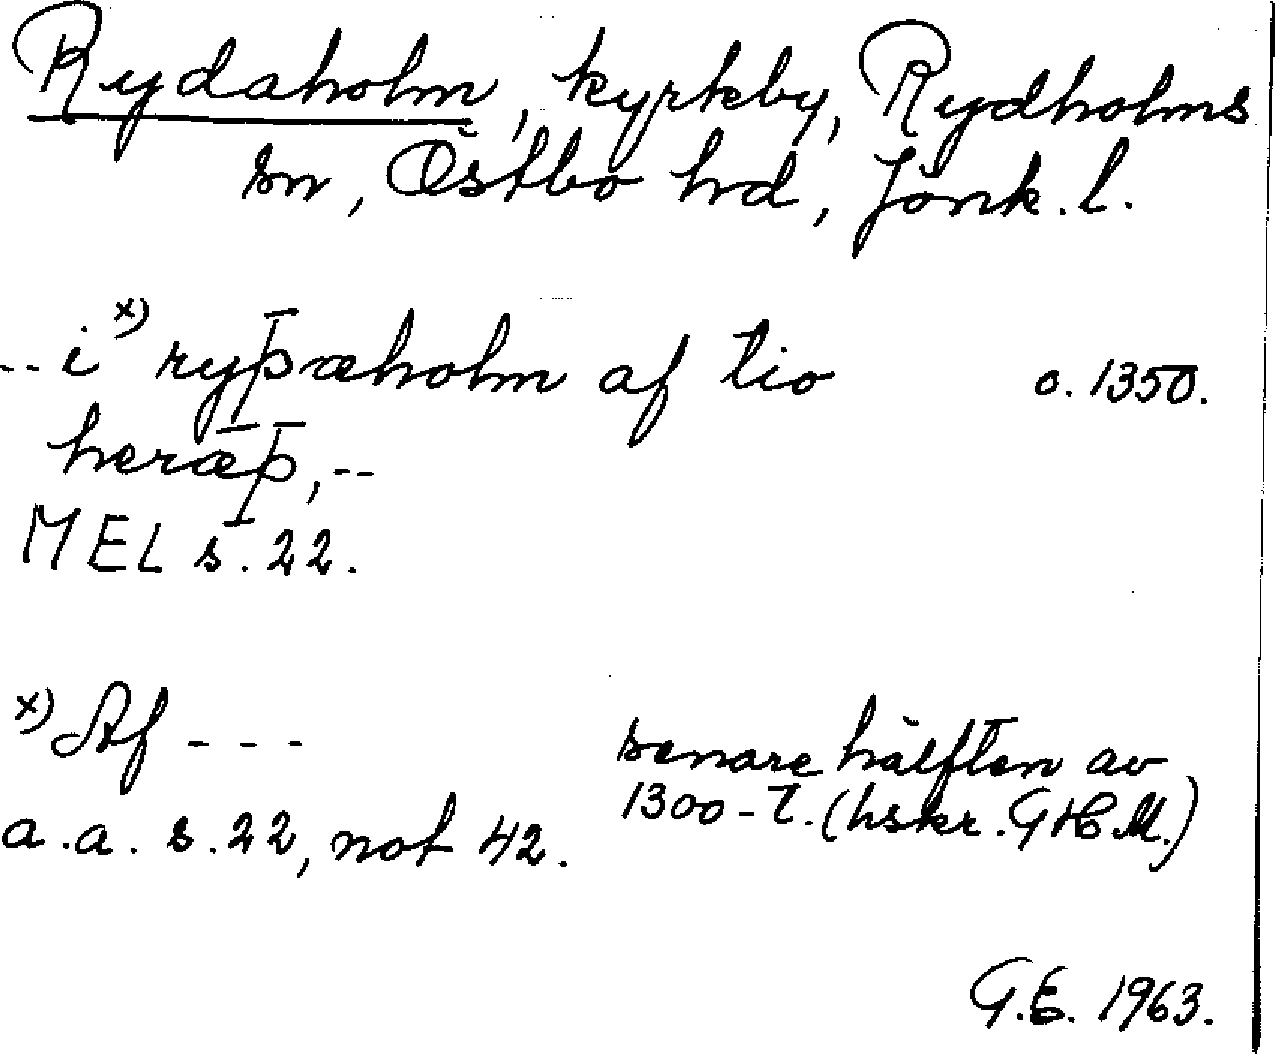 Rydaholm, kyrkby, Rydholms
sn, Östbo hd, Jönk. l.
-- i x) ryþæholm af tio
c. 1350.
heræþ, --
MEL s. 22.
x) Af - - -
senare hälften av
1300-t. (hskr. G H M.)
a.a. s. 22, not 42.
G.E. 1963.